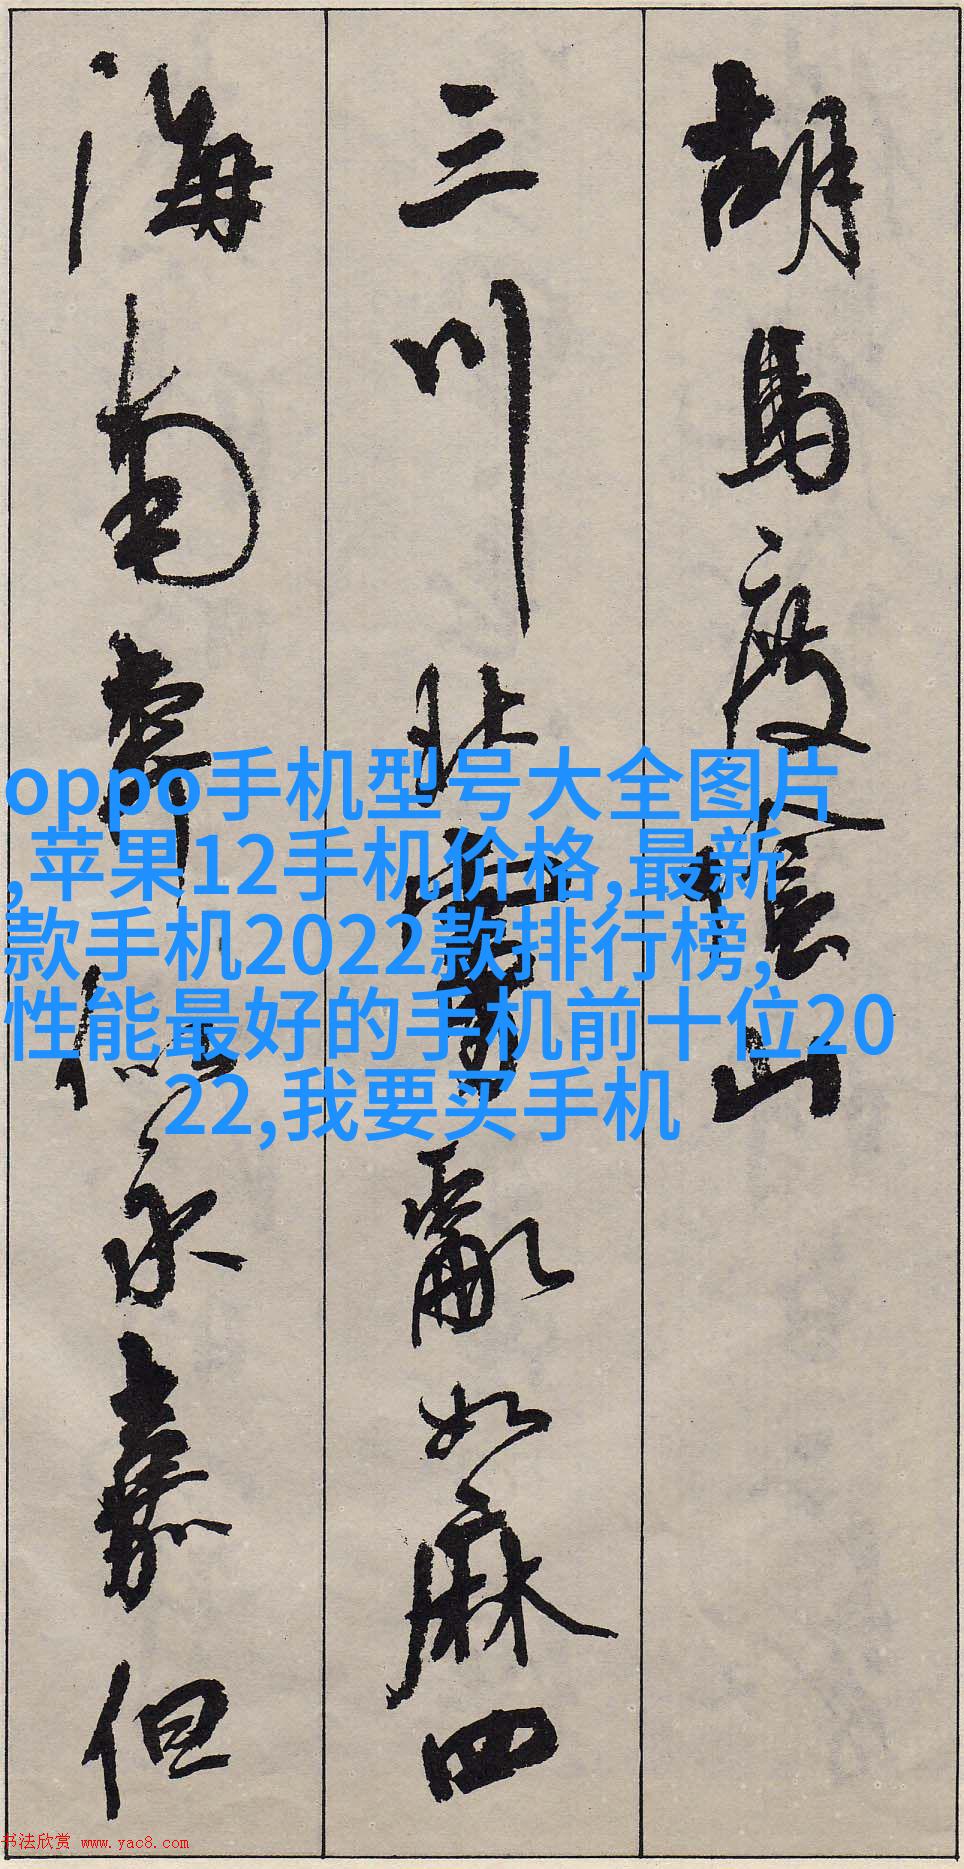 胡馬度陰山
三川北虜亂如麻四
海南奔似永嘉但
oppo手机型号大全图片
,苹果12手机价格,最新
款手机2022款排行榜,
性能最好的手机前十位20
22,我要买手机
书法欣赏 www.yac8.com